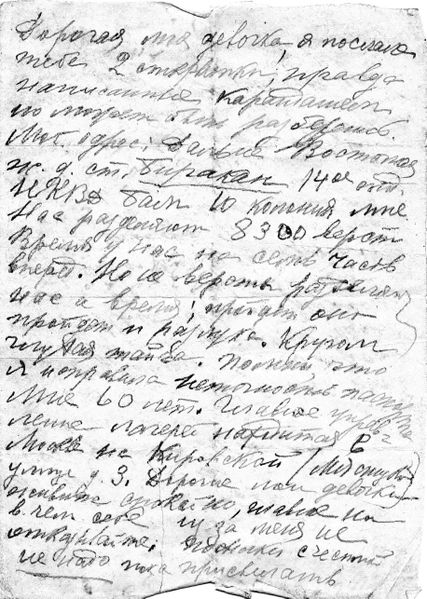 Дорогая моя девочка, я послала
тебе 2 открытки, правда
написанные карандашом
но может быть разберешь.
Мой адрес: Дальне Восточная
ж. д. ст. Биракан 14ое отд.
НКВД Бам 10 колония мне.
Нас разделяют 8300 верст
Время у нас на семь часов
вперед. Но не версты разделяют
нас а время; пройдет оно
пройдет и разлука. Кругом
глухая тайга. Помни что
я исправила неточность паспорта
Мне 60 лет. Главное управ
ление лагерей находится в
Москве на Кировской
улице д. 3. Дорогие мои девочки
живите спокойно, главное ни
в чем себе и за меня не
отказывайте; посылки с честной
не надо пока присылать